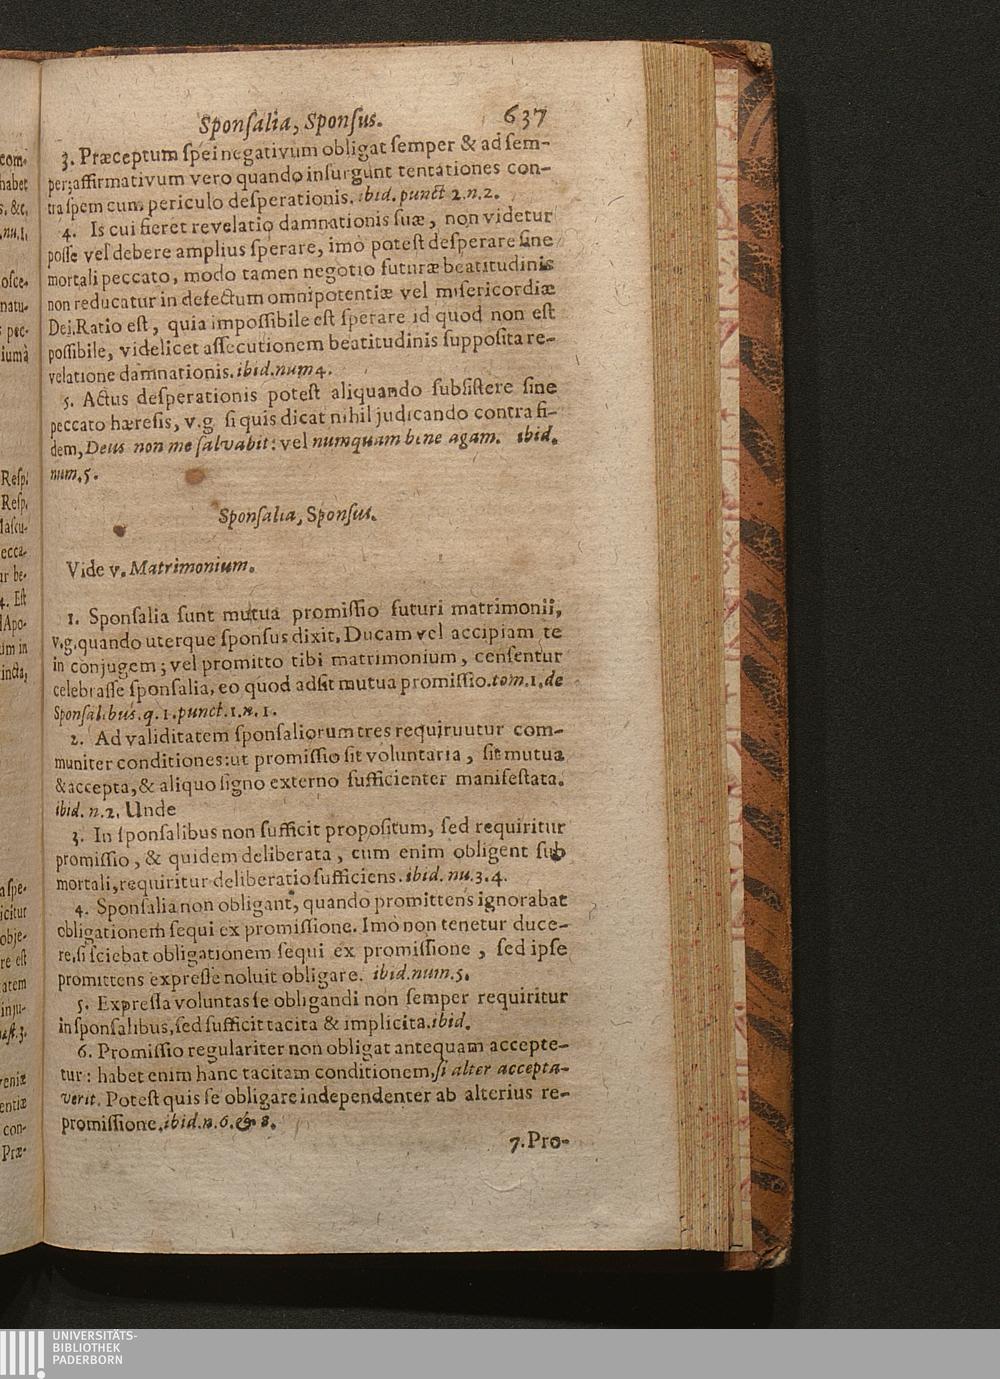 Sponſalia, Sponſus. 637
3. Præceptum ſpei negativum obligat ſemper & ad ſem-
per; affirmativum vero quando inſurgunt tentationes con-
tra ſpem cum periculo deſperationis. ibid. punct 2. n. 2.
4. Is cui fieret revelatio damnationis ſuæ, non videtur
poſſe vel debere amplius ſperare, imò poteſt deſperare ſine
mortali peccato, modo tamen negotio futuræ beatitudinis
non reducatur in defectum omnipotentiæ vel miſericordiæ
Dei. Ratio eſt, quia impoſſibile eſt ſperare id quod non eſt
poſſibile, videlicet aſſecutionem beatitudinis ſuppoſita re-
velatione damnationis. ibid. num 4.
5. Actus deſperationis poteſt aliquando ſubſiſtere ſine
peccato hæreſis, v.g ſi quis dicat nihil judicando contra fi-
dem, Deus non me ſalvabit: vel numquam bene agam. ibid.
num. 5.
Sponſalia, Sponſus.
Vide v. Matrimonium.
1. Sponſalia ſunt mutua promiſſio futuri matrimonii,
v.g. quando uterque ſponſus dixit, Ducam vel accipiam te
in conjugem; vel promitto tibi matrimonium, cenſentur
celebraſſe ſponſalia, eo quod adſit mutua promiſſio. tom. 1. de
Sponſalibus. q. 1. punct. 1. n. 1.
2. Ad validitatem ſponſaliorum tres requiruutur com-
muniter conditiones: ut promiſſio ſit voluntaria, ſit mutua
& accepta, & aliquo ſigno externo ſufficienter manifeſtata.
ibid. n. 2. Unde
3. In ſponſalibus non ſufficit propoſitum, ſed requiritur
promiſſio, & quidem deliberata, cum enim obligent ſub
mortali, requiritur deliberatio ſufficiens. ibid. nu. 3. 4.
4. Sponſalia non obligant, quando promittens ignorabat
obligationem ſequi ex promiſſione. Imò non tenetur duce-
re, ſi ſciebat obligationem ſequi ex promiſſione, ſed ipſe
promittens expreſſe noluit obligare. ibid. num. 5.
5. Expreſſa voluntas ſe obligandi non ſemper requiritur
in ſponſalibus, ſed ſufficit tacita & implicita. ibid.
6. Promiſſio regulariter non obligat antequam accepte-
tur: habet enim hanc tacitam conditionem, ſi alter accepta-
verit. Poteſt quis ſe obligare independenter ab alterius re-
promiſſione. ibid. n. 6. & 8.
7. Pro-
UNIVERSITÄTS-
BIBLIOTHEK
PADERBORN